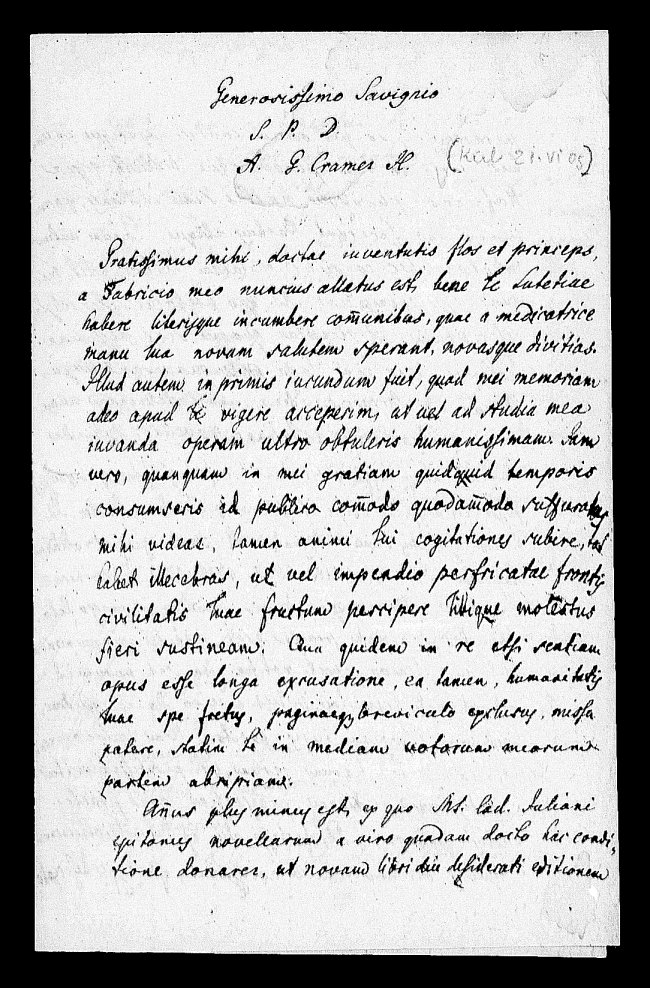 Generosissimo Savignio
S. P. D
A. G. Cramer H.
(Kiel 21. VI 05)
Gratissimus mihi, doctae iuventutis flos et princeps,
a Fabricio meo nuncius allatus est, bene te Lutetiae
habere literisque incumbere com̄unibus, quae a medicatrice
manu tua novam salutem sperant, novasque divitias.
Illud autem in primis iucundum fuit, quod mei memoriam
adeo apud te vigere acceperim, ut vel ad studia mea
iuvanda operam ultro obtuleris humanissimam. Iam
vero, quanquam in mei gratiam quidquid temporis
consumseris id publico com̄odo quodam̄odo suffuratus
mihi videas, tamen animi tui cogitationes subire, tot
habet illecebras, ut vel impendio perfricatae frontis
civilitatis tuae fructum percipere tibique molestus
fieri sustineam. Qua quidem in re etsi sentiam
opus esse longa excusatione, ea tamen, humanitatis
tuae spe fretus, paginaeq3 breviculo exclusus, missa
patere, statim te in mediam votorum meorum
partem abripiam.
An̄us plus minus est, ex quo Ms. Cod. Iuliani
epitomes novellarum a viro quodam docto hac condi-
tione donarer, ut novam libri diu desiderati editionem